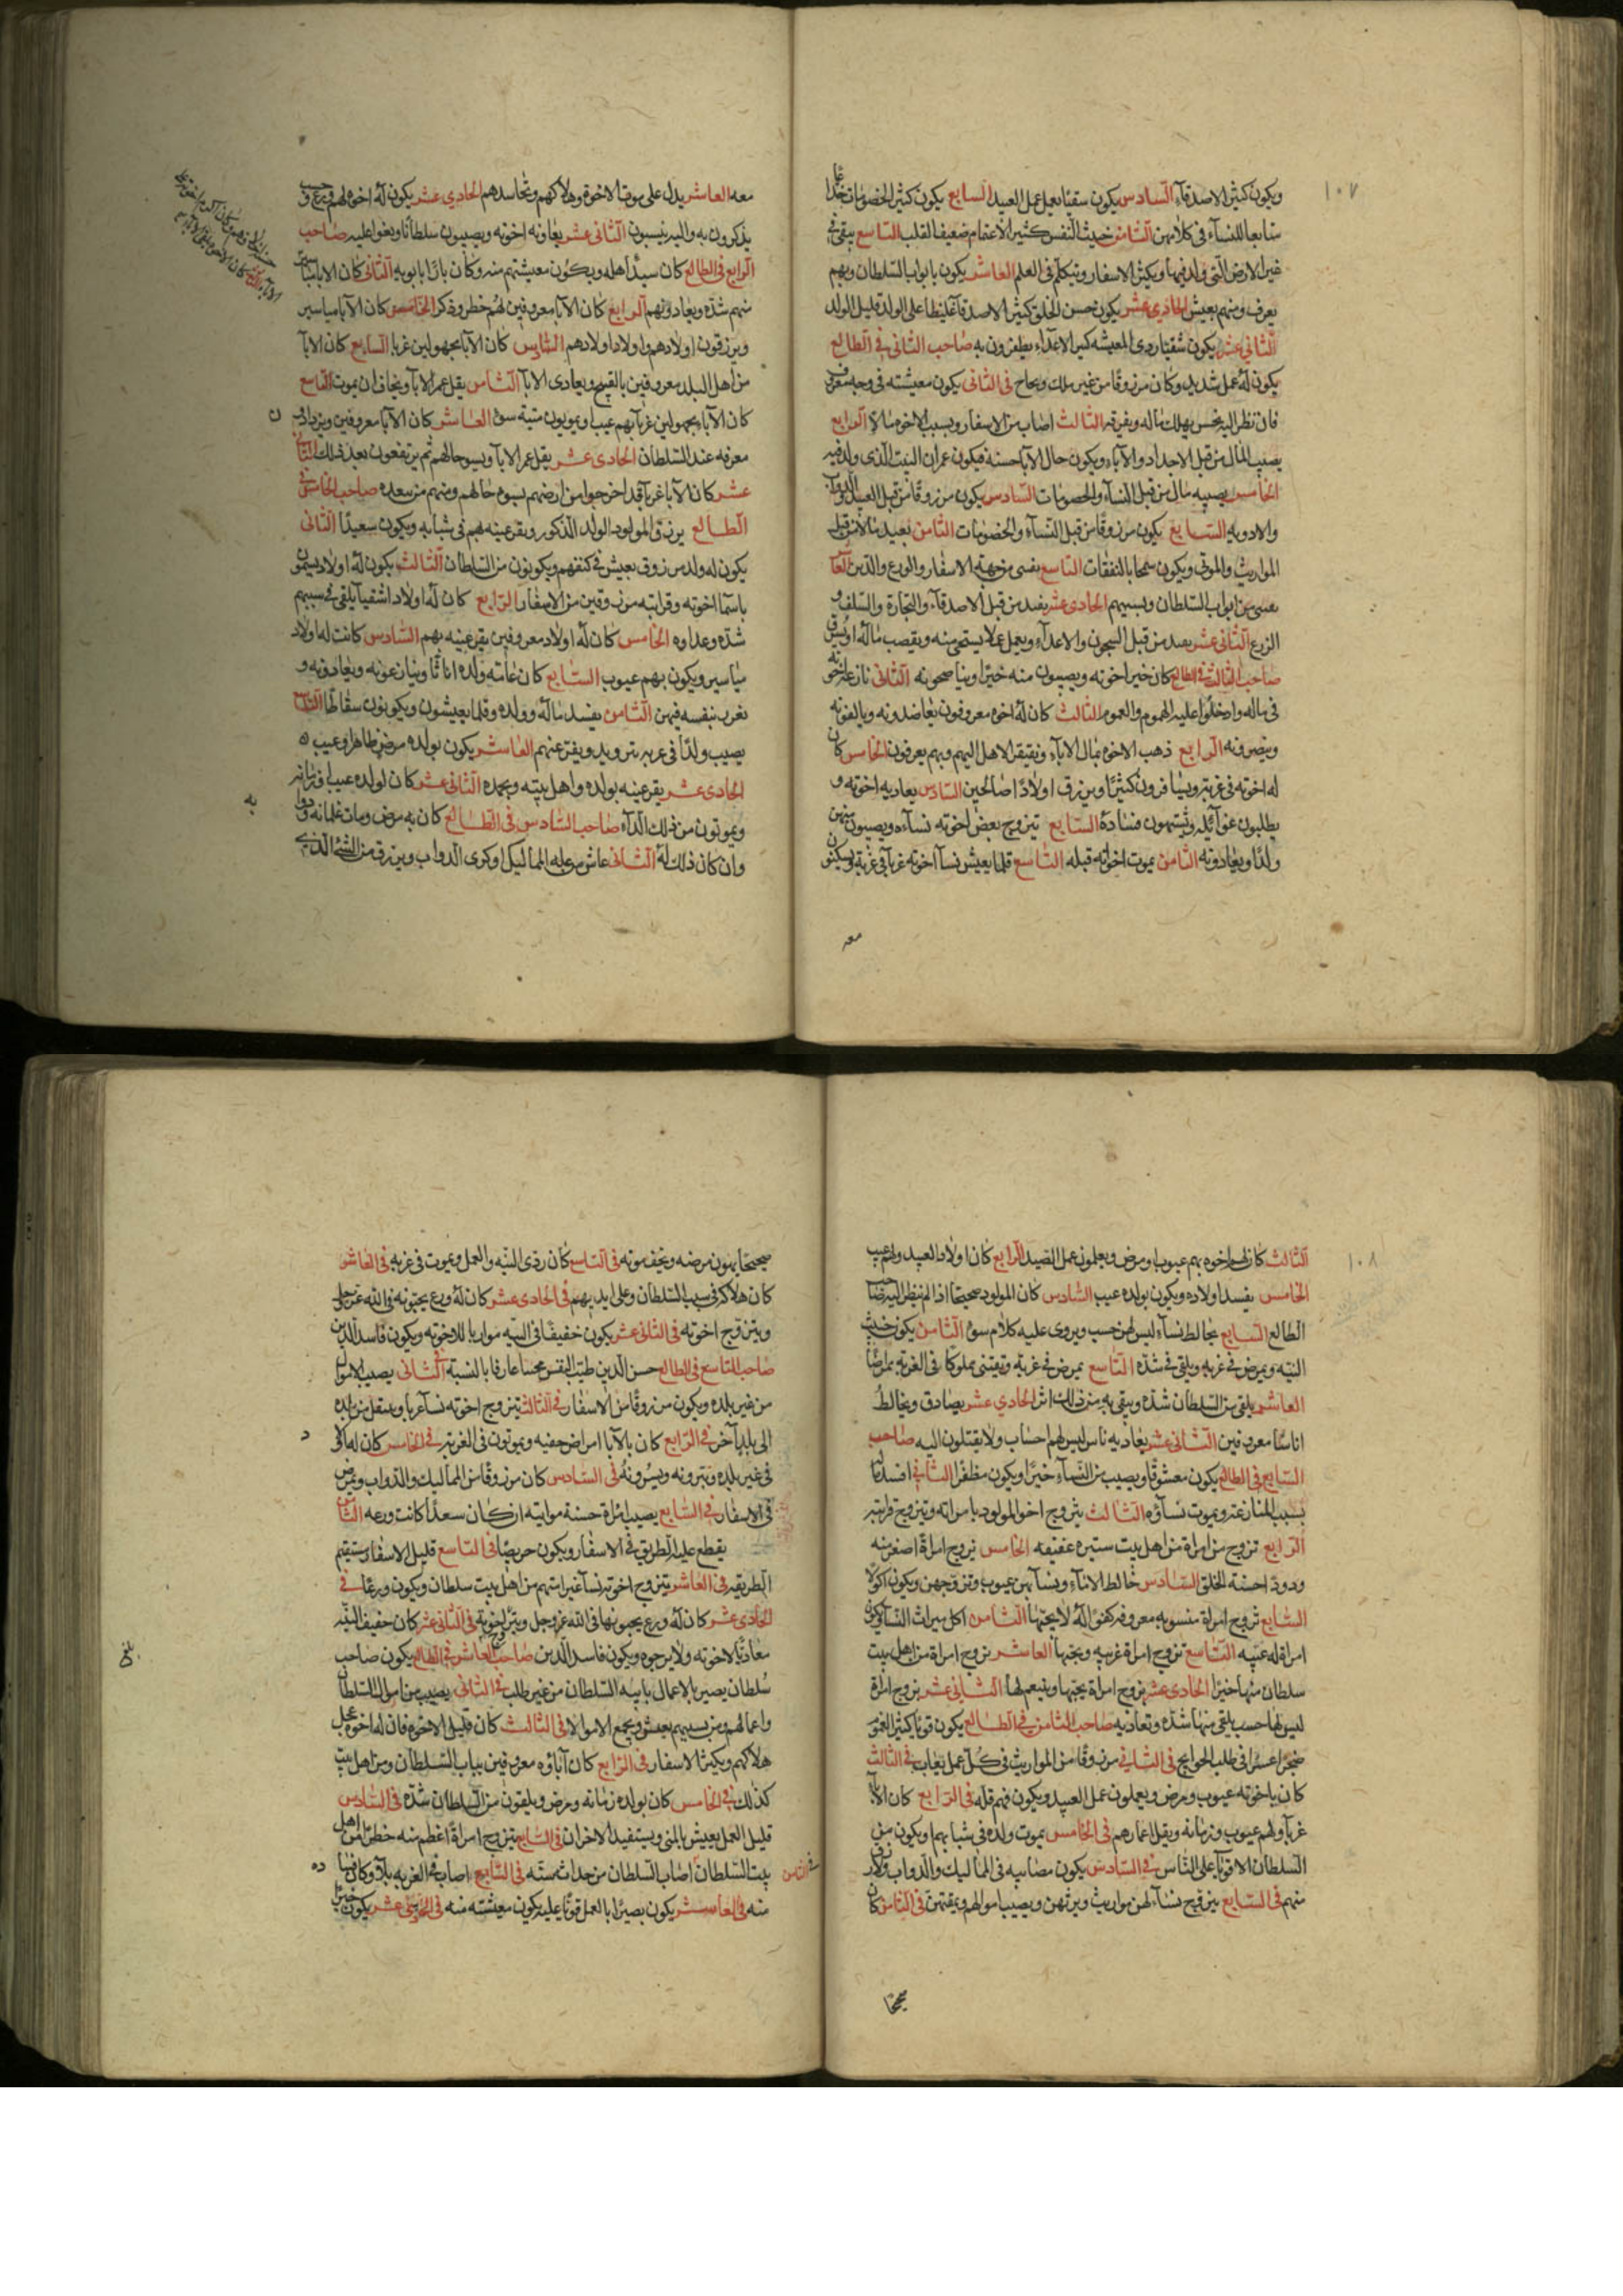 ١٠٧
ويكون كثير الاصدقاء السادس يكون سقيما يعمل عمل العبيد السابع يكون كثير الخصومات
متابعا للنساء في كلامهن الثامن خبيث النفس كثير الاغتمام ضعيف القلب التاسع يبقى في
غير الارض التي ولد فيها ويكثر الاسفار ويتكلم في العلم العاشر يكون بابواب السلطان وبهم
يعرف ومنهم يعيش الحادي عشر يكون حسن الخلق كثير الاصدقاء غليظا على الولد قليل الولد
الثاني عشر يكون شقيا ردي المعيشه كثير الاعداء يظفرون به صاحب الثاني في الطالع
يكون له عمل شديد وكان مرزوقا من غير ملك في الثاني يكون معيشته في وجه معروف
فان نظر اليه نحس يهلك ماله ويفرقه الثالث اصاب من الاسفار وبسبب الاخوه مالا الرابع
يصيب المال من قبل الاجداد والآباء ويكون حال الآبا حسنة فيكون عمران البيت الذي ولد فيه
الخامس يصيبه مال من قبل النسآء والخصومات السادس يكون مرزوقا من قبل العبيد
والادويه السابع يكون مرزوقا من قبل النسآء والخصومات الثامن من قبل
المواريث والموتى ويكون سمحا بالنفقات التاسع من جهة الاسفار والورع والدين
من ابواب السلطان وبسببهم الحادي عشر من قبل الاصدقاء والتجارة والسلف و
الزرع الثاني عشر من قبل السجون والاعدآء ويعمل عملا يستحى منه
صاحب الثالث في الطالع كان خيرا اخوته ويصيبون منه خيرا ويناصحونه الثاني
في ماله وادخلوا عليه الهموم والغموم الثالث كان له اخوه معروفون يعاضدونه ويالفونه
وينصرونه الرابع ذهب الاخوه بمال الاباء الاهل اليهم وبهم يعرفون الخامس كان
له اخوته في غربته ويسافرون كثيرا ويرزق اولادا صالحين السادس يعاديه اخوته و
يطلبون غوائله السابع تتزوج بعض اخوته نسآءه ويصيبون منهن
ولدا ويعادونه الثامن يموت اخواته قبله التاسع قلما يعيش نسآ اخوته غربآ في غربة
معه
معه العاشر يدل على موت الاخوة وهلاكهم وتحاسدهم الحادي عشر يكون له اخوه لهم ورع
يذكرون به واليه ينسبون الثاني عشر اخوته ويصيبون سلطانا صاحب
الرابع في الطالع كان سيد اهله ويكون معيشتهم منه وكان بارا بابويه الثاني كان الابا
منهم شدة ويعادونهم الرابع كان الآبا معروفين لهم خطر وذكر الخامس كان الآبا مياسير
ويرزقون اولادهم واولاد اولادهم السادس كان الآبا مجهولين غربا السابع كان الابآ
من اهل البلد معروفين بالقبيح ويعادي الابآ الثامن يقل عمر الابآ ويخاف ان يموت التاسع
كان الآباء مجهولين غربآ بهم عيب ويموتون ميتة سوء العاشر كان الآبا معروفين
معرفه عند السلطان الحادي عشر يقل عمر الابآ ويسوء حالهم ثم يرتفعون بعد ذلك
عشر كان الآبا غربآ قد اخرجوا من ارضهم يسوء حالهم ومنهم من صاحب الخامس في
الطالع يرزق المولود الولد الذكور ويقر عينه بهم في شبابه ويكون سعيدا الثاني
يكون له ولد مرزوق يعيش في كنفهم ويكونون من السلطان الثالث يكون له اولاد يسمون
باسما اخوته وقرابته مرزوقين من الاسفار الرابع كان له اولاد اشقيآ يلقى في سببهم
شدة وعداوه الخامس كان له اولاد معروفين يقر عينه بهم السادس كانت له اولاد
مياسير ويكون بهم عيوب السابع كان عامة ولده اناثا وينازعونه ويعادونه و
بنفسه فيهن الثامن يفسد ماله وولده وقلما يعيشون ويكونون سقاطا التاسع
يصيب ولدا في غربه العاشر يكون بولده مرض ظاهر وعيب
الحادي عشر يقر عينه بولده واهل بيته ويحمده الثاني عشر كان لولده عيب
ويموتون من ذلك الدآء صاحب السادس في الطالع كان به مرض ومات غلمانه
وان كان ذلك له الثاني عاش من عمل المماليك او كرى الدواب ويرزق من الشئ الذي
١٠٨
الثالث كان لهم اخوه بهم عيوب او مرض ويعملون عمل الصيد الرابع كان اولاد العبيد ولهم عيب
الخامس يفسد اولاده ويكون بولده عيب السادس كان المولود صحيحا اذا لم ينظر اليه
الطالع السابع يخالط نسآء ليس لهن حسب ويروى عليه كلام سوء الثامن يكون خبيث
النيه ويمرض في غربه ويلقى في شدة التاسع يمرض في غربة ويقتني مملوكا في الغربة ممراضا
العاشر يلقى من السلطان شدة ويبقى به من ذلك اثر الحادي عشر يصادق ويخالط
اناسا معروفين الثاني عشر يعاديه ناس ليس لهم احساب ولا يقتلون اليه صاحب
السابع في الطالع يكون معشوقا ويصيب من النسآء خيرا ويكون مظفرا الثاني افسد ماله
بسبب المنازعة ويموت نسآؤه الثالث يتزوج اخو المولود بامراته ويتزوج قرابته
الرابع تزوج من امراة من اهل بيت ستيره عفيفه الخامس يزوج امراة اصغر منه
ودودة حسنة الخلق السادس خالط الاماء ونسآ بهن عيوب وتزوجهن ويكون اكولا
السابع تزوج امراة منسوبه معروفه كفوا له لا يحبها الثامن اكل ميراث النسآ
امراة له عنيه التاسع تزوج امراة غريبه ويحبها العاشر تزوج امراة من اهل بيت
سلطان منها خيرا الحادي عشر تزوج امراة يحبها وينعم لها الثاني عشر تزوج امراة
ليس لها حسب يلقى منها شدة وتعاديه صاحب الثامن في الطالع يكون قويا كثير الغم
ضجرا عسرا في طلب الحوايج في الثاني مرزوقا من المواريث في كل عمل يعاب في الثالث
كان باخوته عيوب ومرض ويعملون عمل العبيد ويكون فيهم قله في الرابع كان الآبآ
غربآ ولهم عيوب وزمانه ويقل اعمارهم في الخامس يموت ولده في شبابهم ويكون من
السلطان الاقويآ على الناس في السادس يكون مصايبه في المماليك والدواب
منهم في السابع يتزوج نسآء لهن مواريث ويرثهن ويصيب اموالهم ويمقتهن في الثامن كان
صحيحا
صحيحا يهون مرضه ويخف موته في التاسع كان ردي النيه والعمل ويموت في غربه في العاشر
كان هلاكه في سبب السلطان وعلى ايديهم في الحادي عشر كان له ورع يحبونه في الله عز وجل
ويتزوج اخوته في الثاني عشر يكون خفيفا في النيه مواربا للاخوته ويكون فاسد الدين
صاحب التاسع في الطالع حسن الدين طيب النفس محسنا عارفا بالنسبة الثاني يصيب الاموال
من غير بلده ويكون مرزوقا من الاسفار في الثالث يتزوج اخوته نسآ غربآ وينتقل من بلده
الى بلد آخر في الرابع كان بالآبا امراض خفيه ويموتون في الغربه في الخامس كان له اولاد
في غير بلده ويبرونه ويسرونه في السادس كان مرزوقا من المماليك والدواب ويمرض
في الاسفار في السابع يصيب امراة حسنة مواتيه ان كان سعدا كانت ورعه الثامن
يقطع عليه الطريق في الاسفار ويكون حريصا في التاسع قليل الاسفار مستقيم
الطريقه في العاشر يتزوج اخوته نسآ غير امتهم من اهل بيت سلطان ويكون ورعا في
الحادي عشر كان له ورع يحبونها في الله عز وجل ويتزوج اخوته في الثاني عشر كان خفيف النيه
معاديا لاخوته ولا يرجوه ويكون فاسد الدين صاحب العاشر في الطالع يكون صاحب
سلطان بصير بالاعمال ياتيه السلطان من غير طلب في الثاني يصيب من اموال السلطان
واعمالهم ومن سببهم يعيش ويجمع الاموال في الثالث كان قليل الاخوه فان له اخوه عجل
هلاكهم ويكثر الاسفار في الرابع كان آباؤه معروفين بباب السلطان ومن اهل بيت
كذلك في الخامس كان بولده زمانه ومرض ويلقون من السلطان شدة في السادس
قليل العمل يعيش بالمنى ويستفيد الاخزان في السابع يتزوج امراة اعظم منه خطرا من اهل
بيت السلطان اصاب السلطان من حداثة سنه في التاسع اصاب في الغربه بلاء وكان
في الثامن
منه في العاشر يكون بصيرا بالعمل قويا عليه يكون معيشته منه في الحادي عشر يكون خيرا